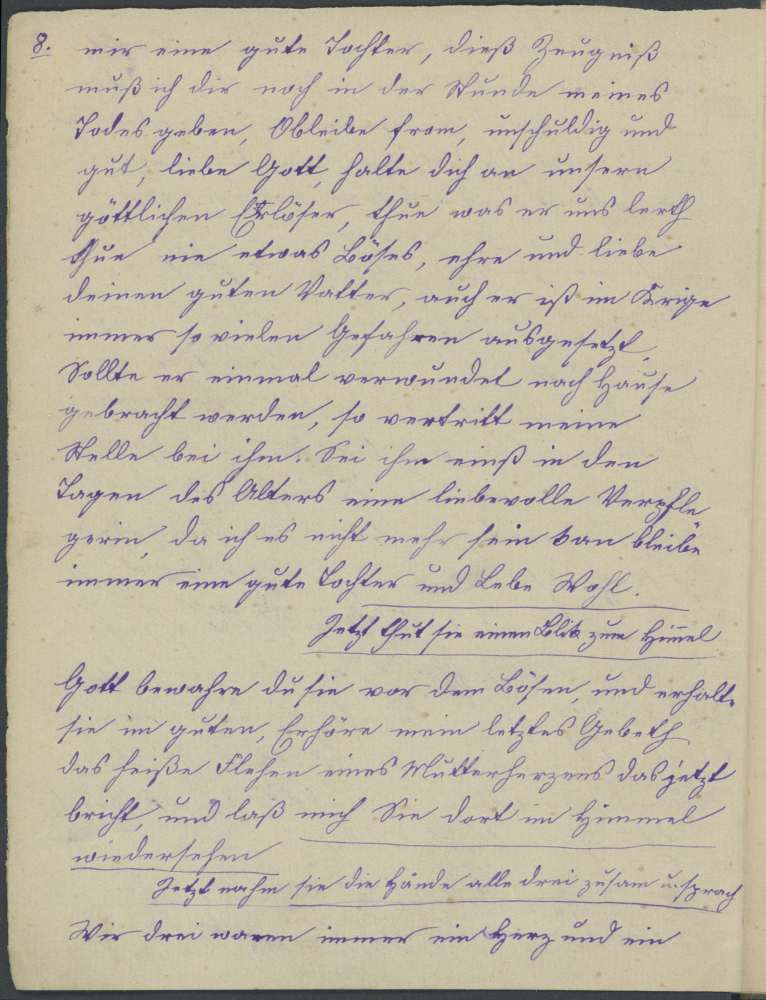 8. mir eine gute Tochter, dieß Zeugniß
muß ich dir noch in der Stunde meines
Todes geben, O bleibe from, unschuldig und
gut, liebe Gott, halte dich an unsern
göttlichen Erlöser, thue was er uns lerth
thue nie etwas Böses, ehre und liebe
deinen guten Vatter, auch er ist im Krige
immer so vielen Gefahren ausgesetzt,
Sollte er einmal verwundet nach Hause
gebracht werden, so vertritt meine
Stelle bei ihm. Sei ihm einst in den
Tagen des Alters eine liebevolle Verpfle
gerin, da ich es nicht mehr sein kan bleibe
immer eine gute Tochter und Lebe Wohl.
Jetzt thut sie einen Blik zum Himel
Gott bewahre du sie vor dem Bösen, und erhalte
sie im guten, Erhöre mein letztes Gebeth
das heiße Flehen eines Mutterherzens das jetzt
bricht, und laß mich Sie dort im Himmel
wiedersehen
Jetzt nahm sie die Hände alle drei zusam u. sprach
Wir drei waren immer ein Herz und ein